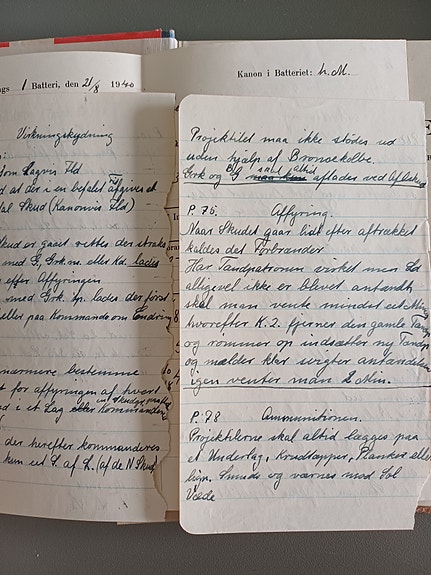 1 Batteri, den 21/8 1940
Kanon i Batteriet: h. M.
Virkningskydning
som Lagvis Ild
d at der en befalet afgives et
tal Skud (Kanonvis Ild)
Skud er gaaet rettes der straks
med lades
efter Affyringen
med Grk. sp. lades der først
eller paa Kommando om Endring
nærmere bestemme
t for affyringen af hvert
d i et Lag eller Kommanderer
der herefter kommanderes
kun et S. af L. (af de N Skud
Projektilet maa ikke stødes ud
uden hjælp af Bronzekolbe.
Grk og BG skal altid aflades ved Aflad
P. 75. Affyring.
Naar Skudet gaar lidt efter aftrækket
kaldes det Forbrænder
Har Tandpatronen virket men Ld
alligevel ikke er blevet antændt
skal man vente mindst et Min
hvorefter K. 2. fjerner den gamle Tand
og rømmer op indsætter ny Tandp
og melder klar svigter antændelsen
igen venter man 2 Min.
P. 78 Ammunitionen.
Projektilerne skal altid lægges paa
et Underlag, Krudtapper, Planker eller
lign. Smuds og værnes mod Sol
Væde